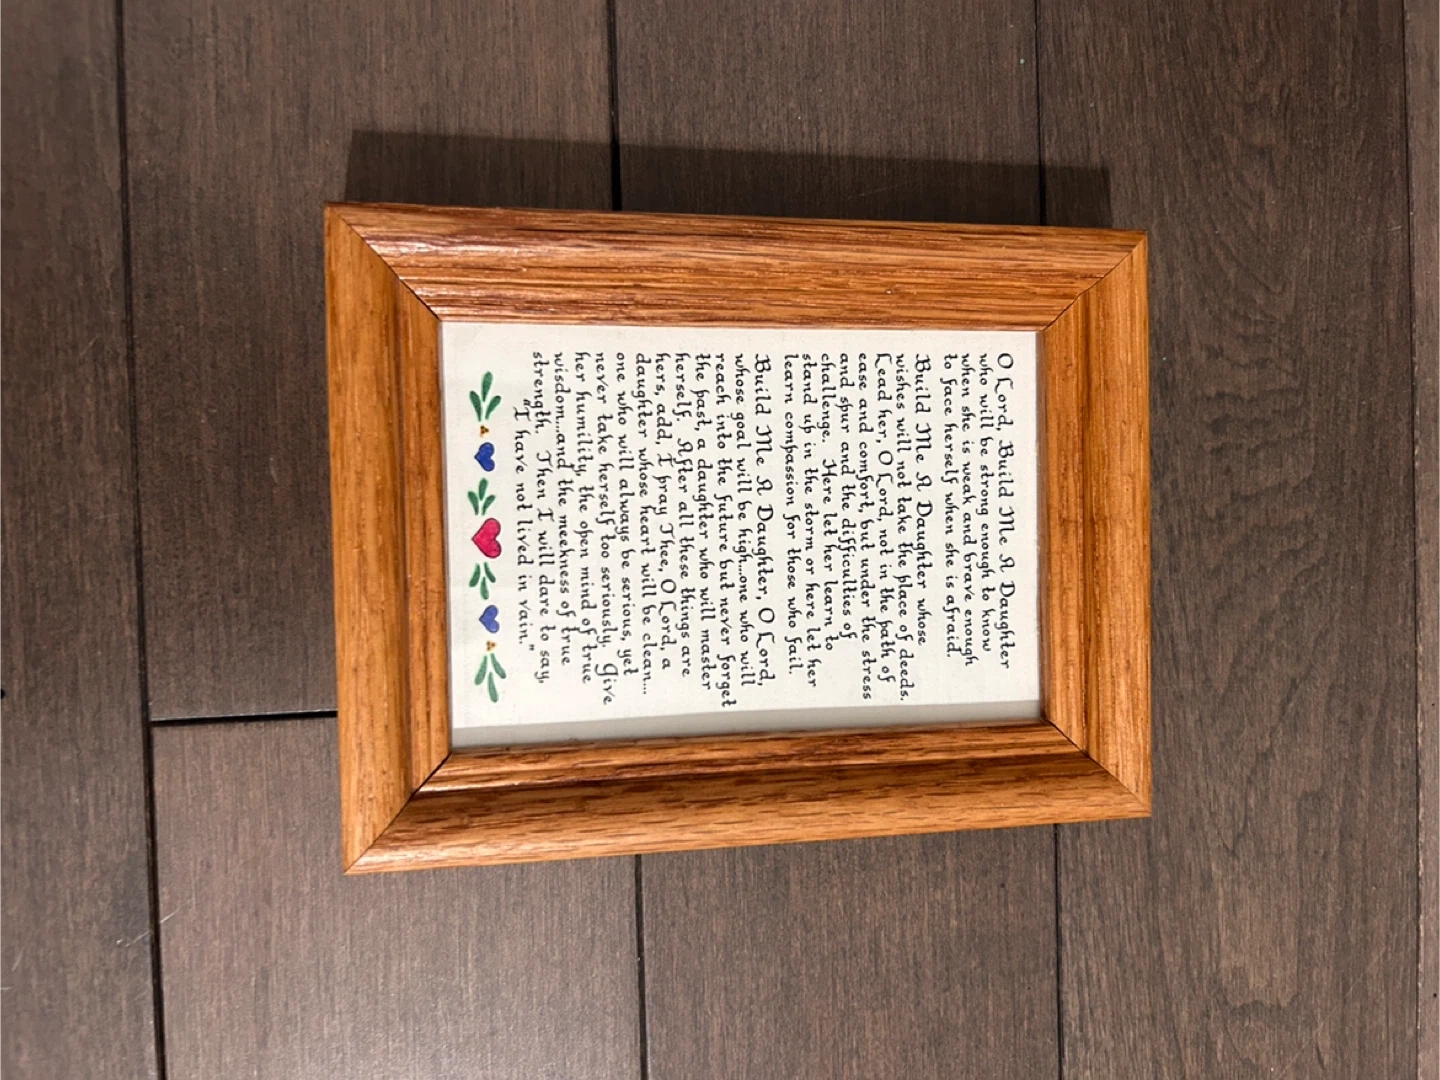 O Lord, Build Me A Daughter
who will be strong enough to know
when she is weak and brave enough
to face herself when she is afraid.
Build Me A Daughter whose
wishes will not take the place of deeds.
Lead her, O Lord, not in the path of
ease and comfort, but under the stress
and spur and the difficulties of
challenge. Here let her learn to
stand up in the storm or here let her
learn compassion for those who fail.
Build Me A Daughter, O Lord,
whose goal will be high...one who will
reach into the future but never forget
the past, a daughter who will master
herself. After all these things are
hers, add, I pray Thee, O Lord, a
daughter whose heart will be clean...
one who will always be serious, yet
never take herself too seriously. Give
her humility, the open mind of true
wisdom...and the meekness of true
strength. Then I will dare to say,
"I have not lived in vain."